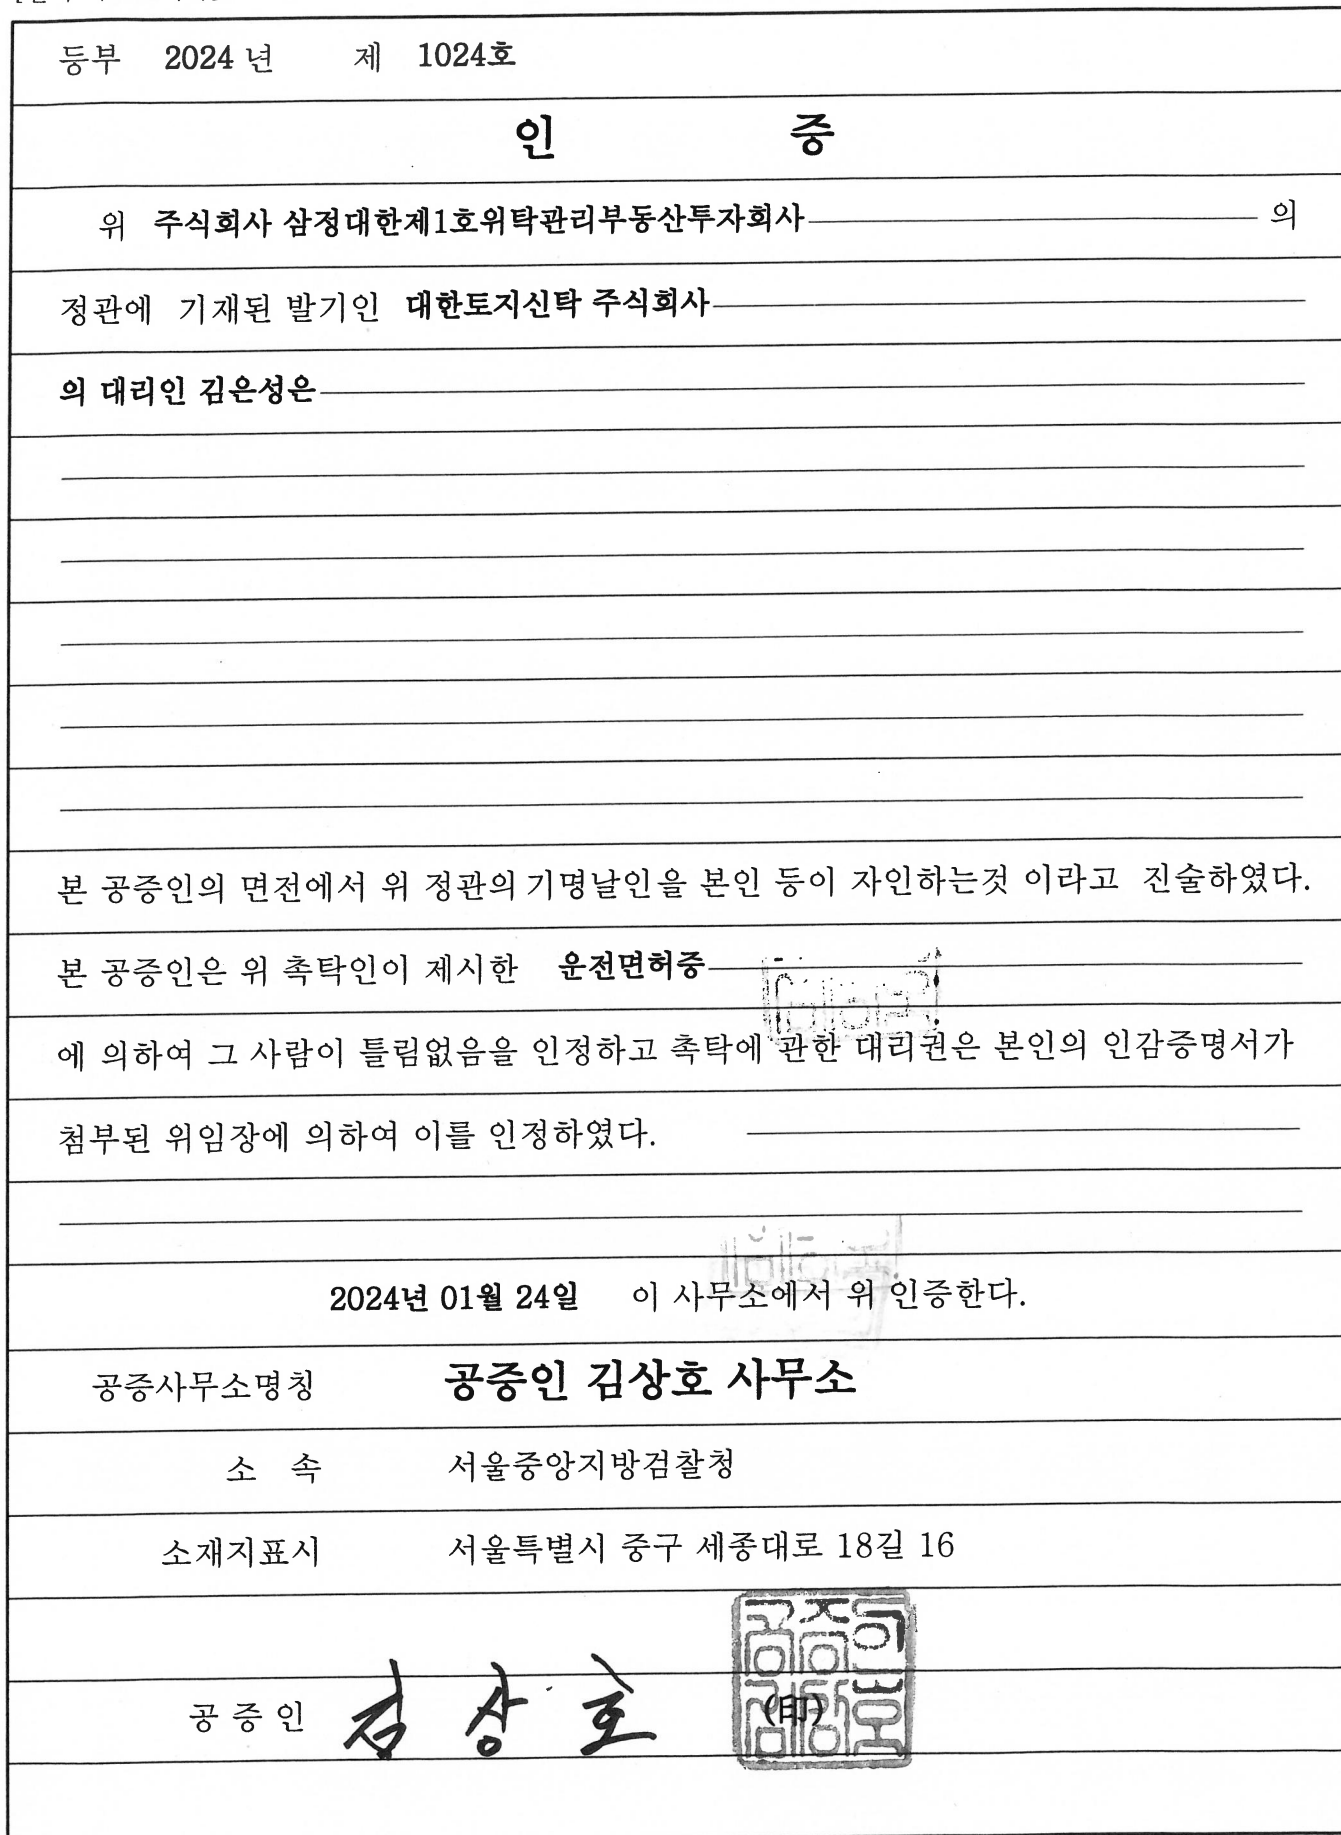 등부 2024 년 제 1024호
인 증
위 주식회사 삼정대한제1호위탁관리부동산투자회사 의
정관에 기재된 발기인 대한토지신탁 주식회사
의 대리인 김은성은
본 공증인의 면전에서 위 정관의 기명날인을 본인 등이 자인하는것 이라고 진술하였다.
본 공증인은 위 촉탁인이 제시한 운전면허증
에 의하여 그 사람이 틀림없음을 인정하고 촉탁에 관한 대리권은 본인의 인감증명서가
첨부된 위임장에 의하여 이를 인정하였다.
2024년 01월 24일 이 사무소에서 위 인증한다.
공증사무소명칭 공증인 김상호 사무소
소 속 서울중앙지방검찰청
소재지표시 서울특별시 중구 세종대로 18길 16
공 증 인 김 상 호 (印)